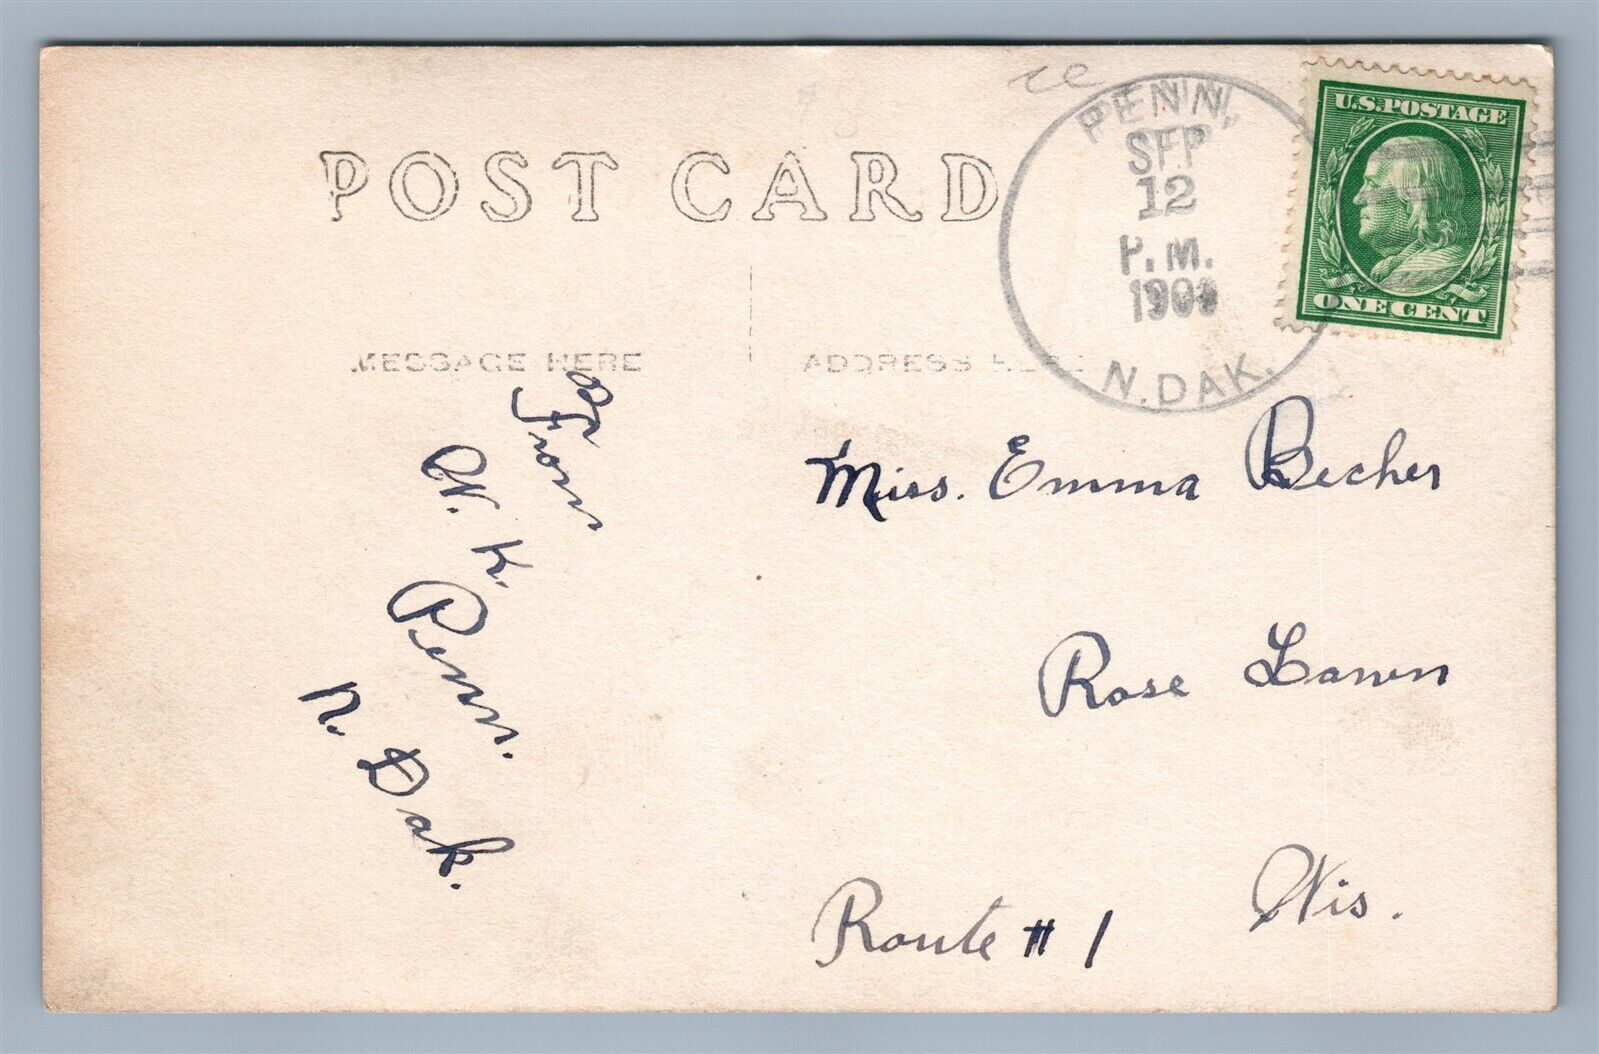 POST CARD
PENN,
SEP
12
P.M.
N. DAK.
U.S. POSTAGE
ONE CENT
MESSAGE HERE
ADDRESS HERE
From
W. K.
Penn.
N. Dak.
Miss. Emma Becher
Rose Lawn
Wis.
Route # 1